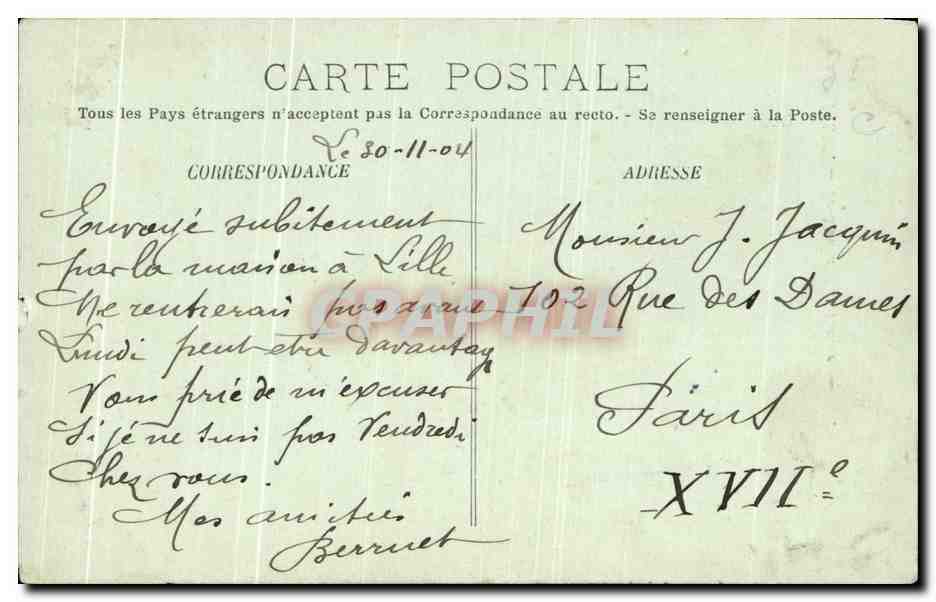 CARTE POSTALE
Tous les Pays étrangers n'acceptent pas la Correspondance au recto. - Se renseigner à la Poste.
Le 30-11-04
CORRESPONDANCE
Envoyé subitement
par la maison à Lille
Ne rentrerai pas avant
Lundi peut etre davantag
Vous prie de m'excuser
Si je ne suis pas Vendredi
Chez vous.
Mes amitiés
Berruet
ADRESSE
Monsieur J. Jacquin
102 Rue des Dames
Paris
XVIIe
CPAPHIL